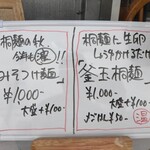 桐麺の秋
今年も濃!!
みそつけ麺
¥1,000-
大盛+¥100-
桐麺に生卵
しょうゆかけまぜた
釜玉桐麺
¥1,000-
大盛+¥100-
温